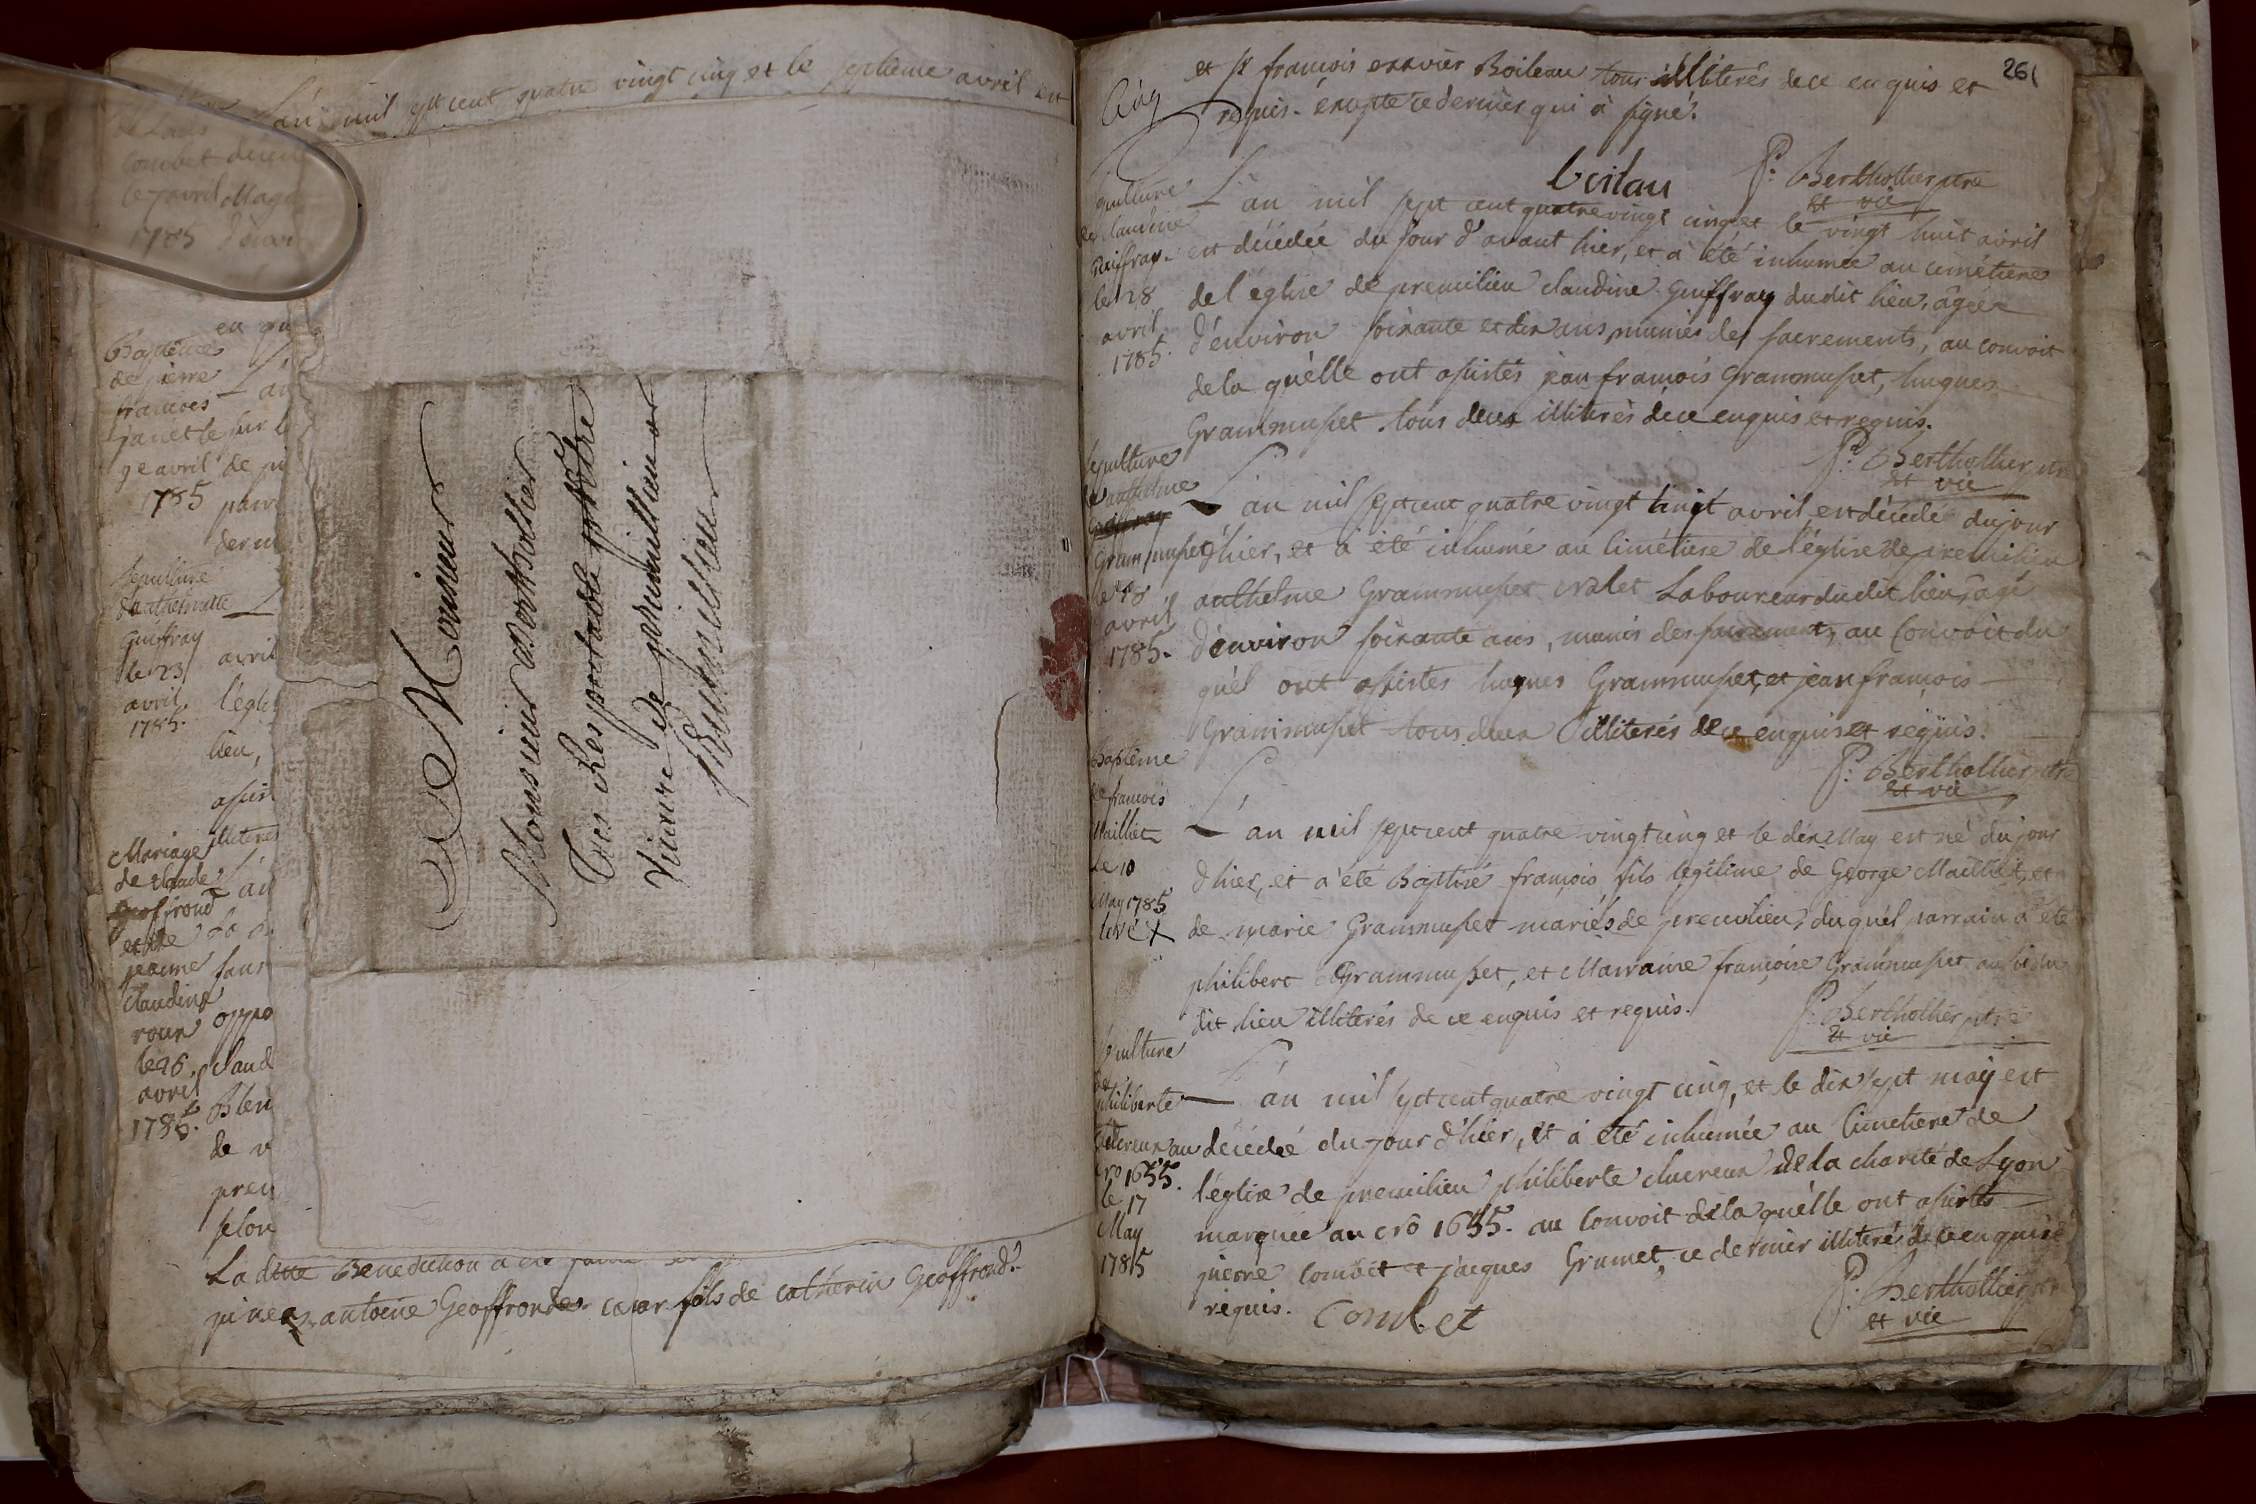 L'an mil sept cent quatre vingt cinq et le septieme avril est
combet
le 7 avril
1785
Baptême
de pierre
francois
janet le
9e avril
1785
sepulture
Guiffray
le 23
avril
1785.
avril
l'égli
lieu,
asist
illiteres
Mariage
de claude
geoffrond
et de
jeanne
claudine
roux
le 26
avril
1785.
sans
oppo
claud
Blen
de v
prem
selon
La dite Benediction a été
antoine Geoffrond fils de catherin Geoffrond
A Monsieur
Monsieur Berthollier
Tres Respectable prêtre
Vicaire de premillieu
A premillieu
261
Cinq
et sr francois exavier Boileau tous illiterés de ce enquis et
requis. éxcepté ce dernier qui à signé.
boilau P: Berthollier ptre
et vic
sepulture
de claudine
Guiffray
le 28
avril
1785.
L'an mil sept cent quatre vingt cinq et le vingt huit avril
est décédée du jour d'avant hier, et à été inhumée au cimétiere
de l'église de premilieu claudine Guiffray dudit lieu, âgée
d'environ soixante et dix ans, munies des sacrements, au convoit
de la quélle ont asistés jean francois Grammuset, hugues
Grammuset tous deux illiterés de ce enquis et requis.
P: Berthollier ptre
et vic
sepulture
de anthelme
Guiffray
Grammuset
le 28
avril
1785.
L'an mil sept cent quatre vingt huit avril est décédé du jour
d'hier, et à été inhumé au cimétiere de l'église de premilieu
anthelme Grammuset valet Laboureur dudit lieu, âgé
d'environ soixante ans, munis des sacrements, au Convoit du
quél ont assistés hugues Grammuset, et jean francois
Grammuset tous deux illiterés de ce enquis et requis.
P: Berthollier ptre
et vic
Baptême
de francois
Mailliet
le 10
May 1785
L'an mil sept cent quatre vingt cinq et le dix May est né du jour
d'hier, et a été Baptisé francois fils légitime de George Mailliet, et
de marie Grammuset mariés de premilieu, duquél parrain a été
philibert Grammuset, et Marraine francoise Grammuset aussi du
dit lieu illiterés de ce enquis et requis.
P: Berthollier ptre
et vic
sepulture
de
philiberte
cro 1655.
le 17
May
1785
L'an mil sept cent quatre vingt cinq, et le dix sept may est
décédée du jour d'hier, et à été inhumée au Cimetiere de
l'église de premilieu philiberte de la charité de Lyon
marquée au crô 1655. au Convoit de la quélle ont asistés
pierre Combet et jacques Grumet, ce dernier illiteré de ce enquis
requis. Combet
P: Berthollier ptre
et vic